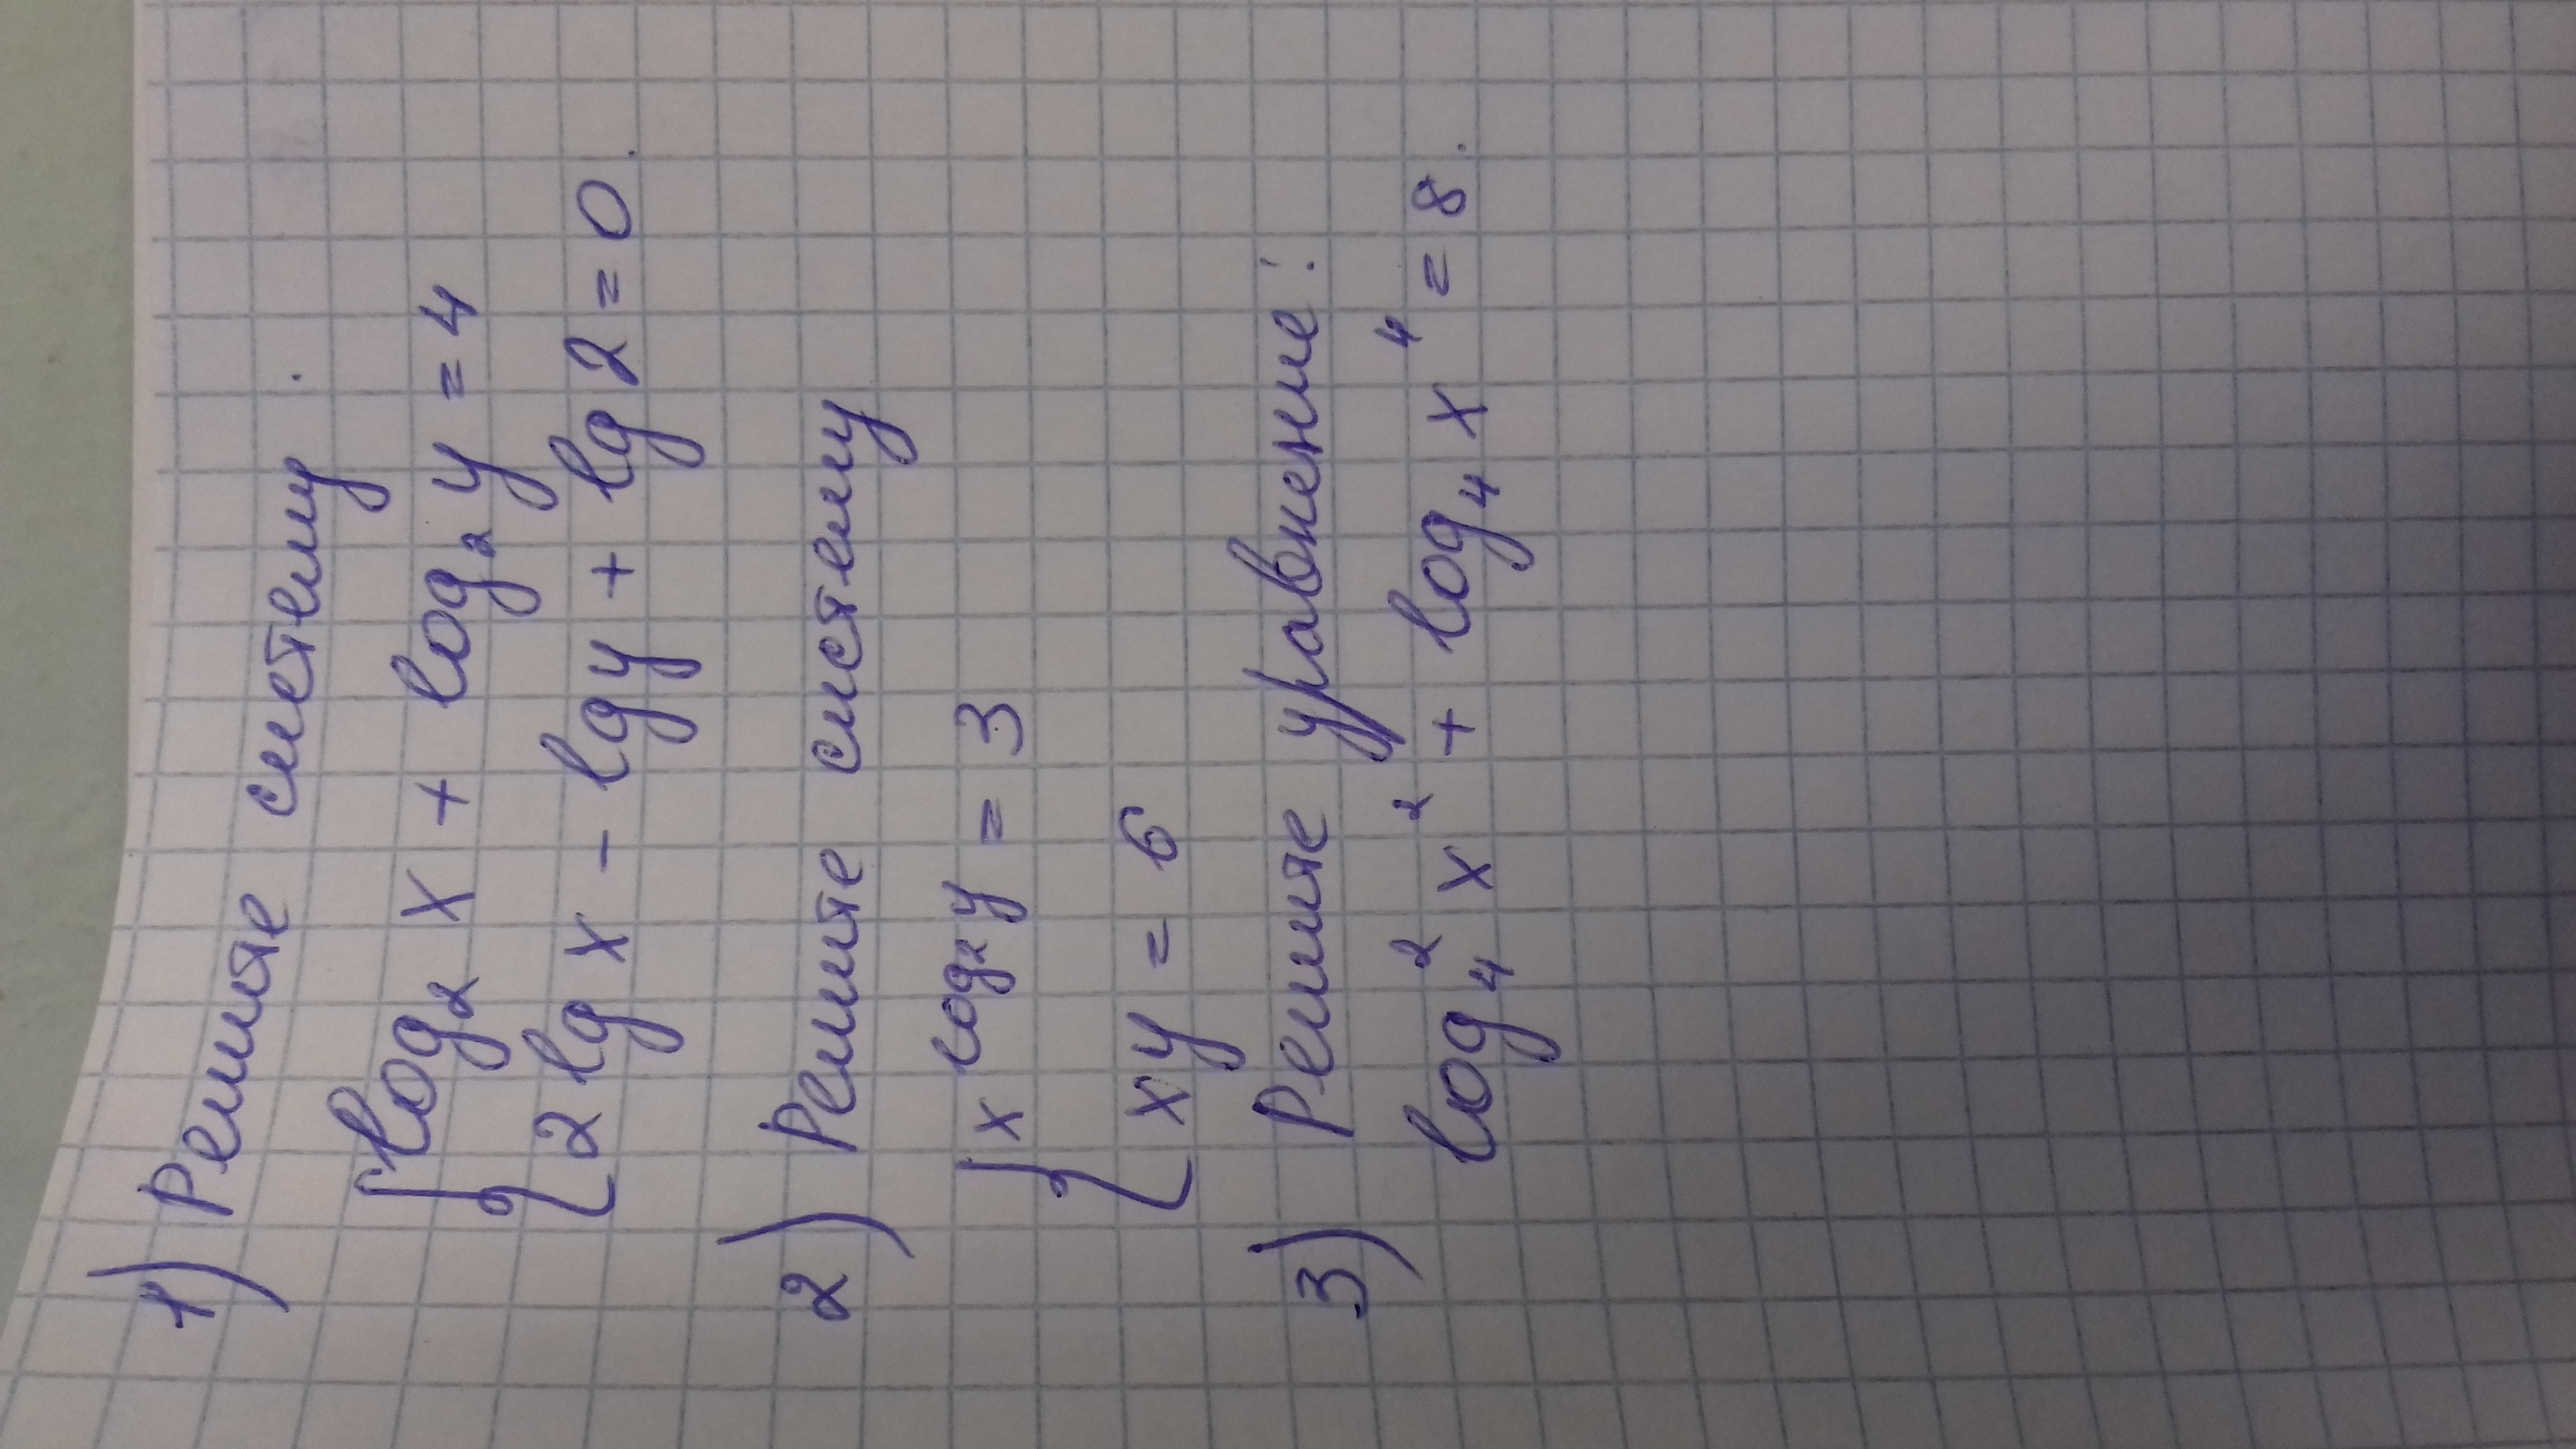 1) Решите систему.
{ log₂ x + log₂ y = 4
2 lg x - lg y + lg 2 = 0.
2) Решите систему
{ x^(log₂ y) = 3
xy = 6
3) Решите уравнение:
log₄² x² + log₄ x⁴ = 8.